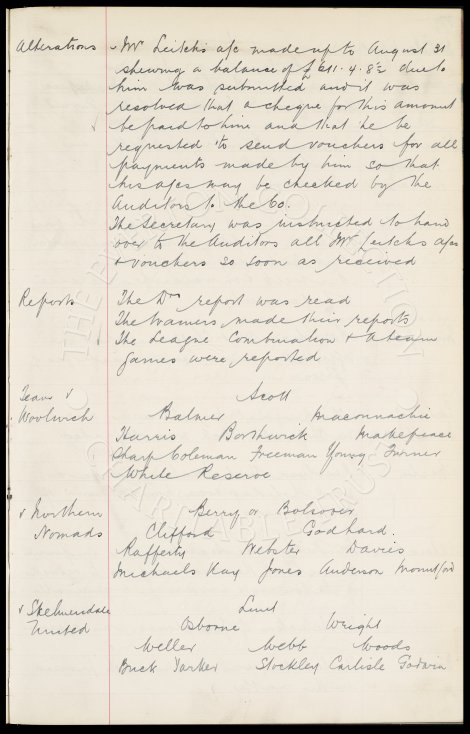 Alterations Mr Leitch's a/c made up to August 31
shewing a balance of £611.4.8½ due to
him was submitted and it was
resolved that a cheque for this amount
be paid to him and that he be
requested to send vouchers for all
payments made by him so that
his a/cs may be checked by the
Auditors to the Co.
The Secretary was instructed to hand
over to the Auditors all Mr Leitch's a/cs
+ vouchers so soon as received
Reports The Drs report was read
The trainers made their reports
The League Combination + A team
games were reported
Team v Scott
Woolwich Balmer Maconnachie
Harris Borthwick Makepeace
Sharp Coleman Freeman Young Turner
White Reserve
v Northern Berry or Bolsover
Nomads Clifford Godhard.
Rafferty Webster Davies
Michaels Kay Jones Anderson Mountford
v Skelmersdale Lunt
United Osborne Wright
Weller Webb Woods
Buck Yarker Stockley Carlisle Godwin
THE EVERTON COLLECTION
CHARITABLE TRUST